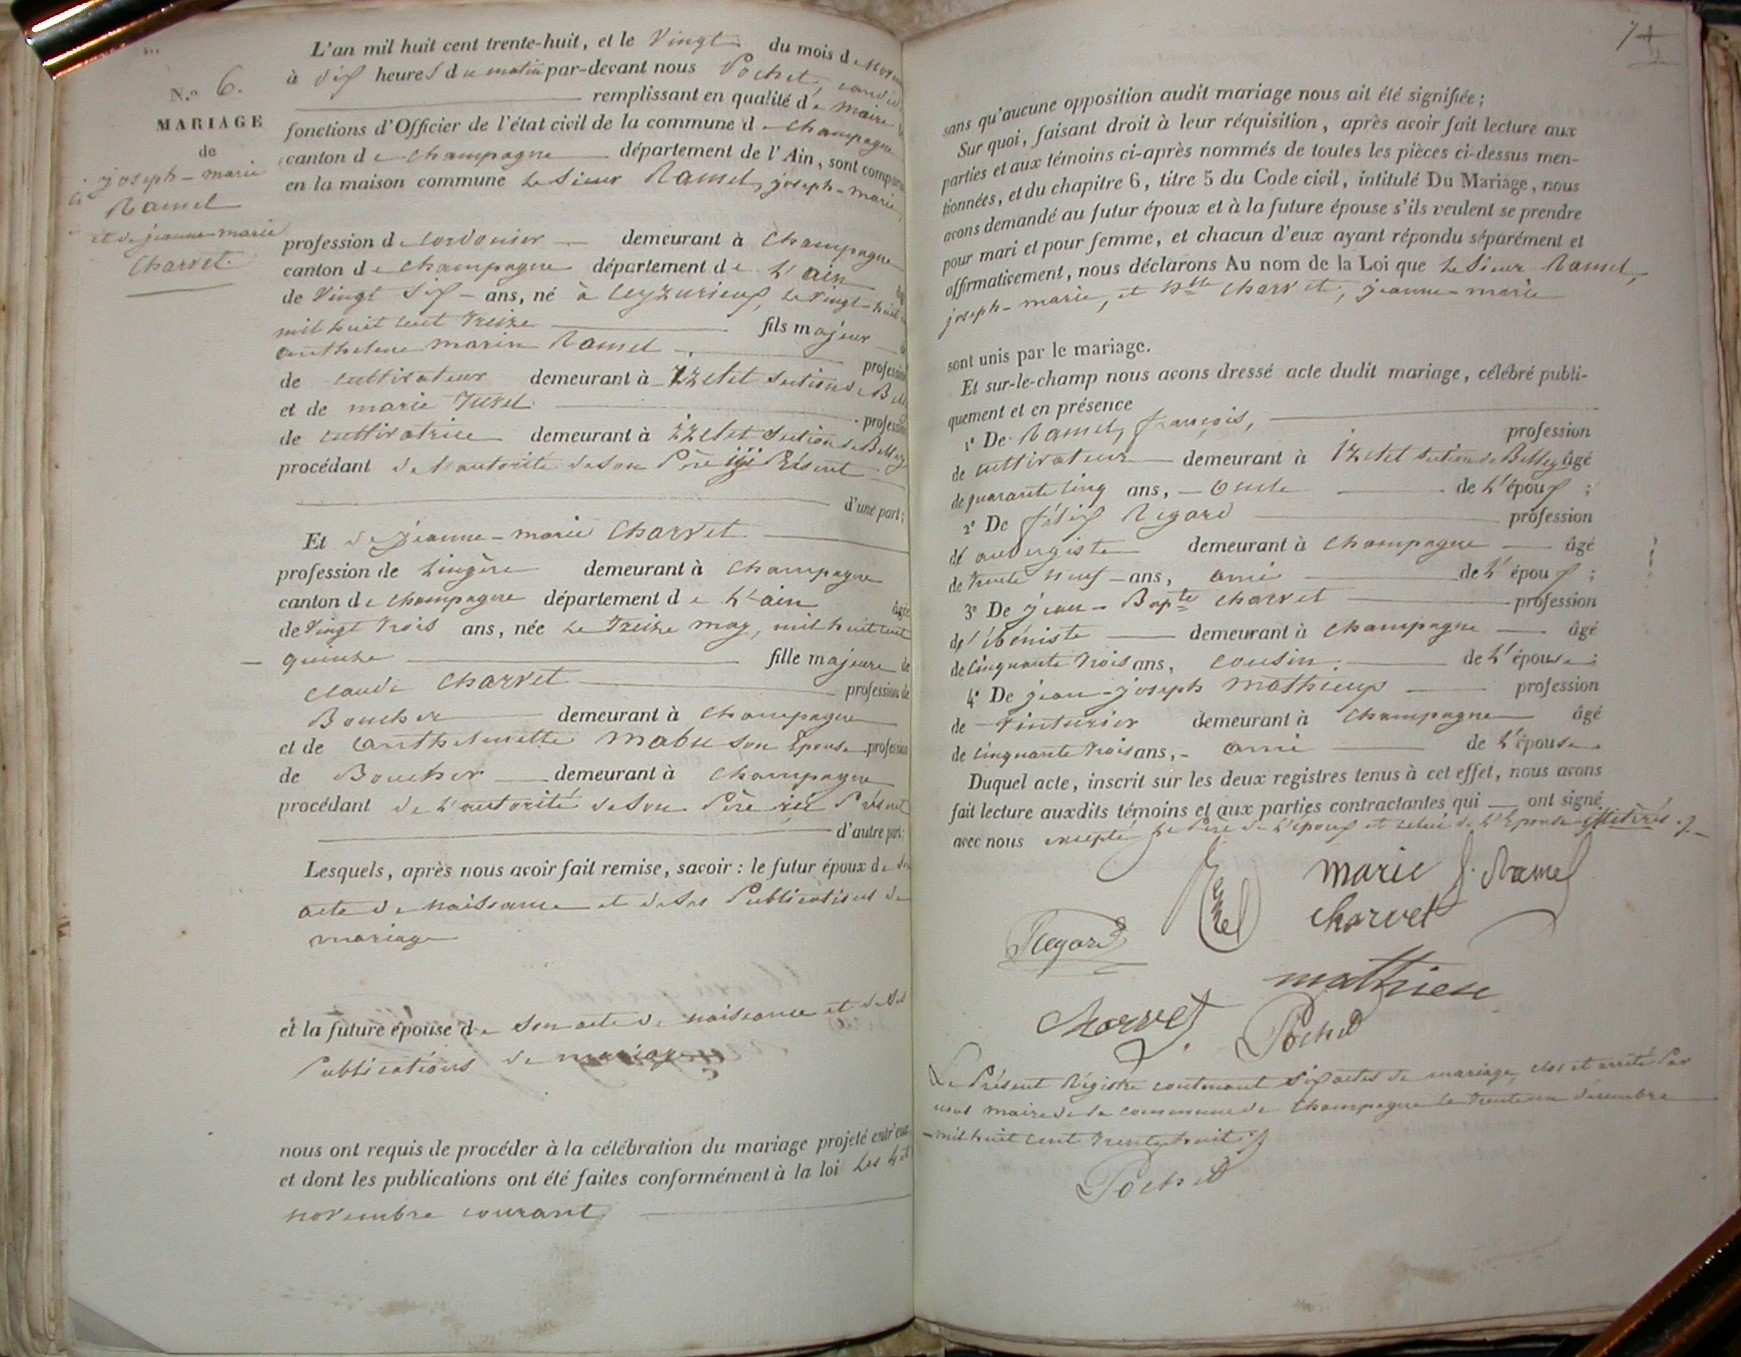 N.º 6.
MARIAGE
de
joseph-marie
Ramel
et de jeanne-marie
Charvet.
L'an mil huit cent trente-huit, et le Vingt du mois de
à dix heures du matin par-devant nous Pochet,
remplissant en qualité de maire
fonctions d'Officier de l'état civil de la commune de Champagne
canton de Champagne département de l'Ain, sont
en la maison commune Le Sieur Ramel, joseph-marie,
profession de Cordonier demeurant à Champagne
canton de Champagne département de L'ain
de Vingt Six ans, né à Ceyzerieux, le vingt-huit
mil huit cent treize fils majeur
anthelme marin Ramel
de cultivateur demeurant à section de
et de marie
de cultivatrice demeurant à section de Belley
procédant de l'autorité de son Père ici Présent
d'une part;
Et de jeanne-marie Charvet
profession de Lingère demeurant à Champagne
canton de Champagne département de L'ain âgée
de Vingt trois ans, née le treize may, mil huit cent
quinze fille majeure de
Claude Charvet profession de
Boucher demeurant à Champagne
et de anthelmette Mabu son Epouse profession
de Boucher demeurant à Champagne
procédant de L'autorité de son Père ici Présent
d'autre part:
Lesquels, après nous avoir fait remise, savoir: le futur époux de son
acte de naissance et de ses Publications de
mariage
et la future épouse de son acte de naissance et de ses
Publications de mariage
nous ont requis de procéder à la célébration du mariage projeté entr'eux
et dont les publications ont été faites conformément à la loi Les
novembre courant
sans qu'aucune opposition audit mariage nous ait été signifiée;
Sur quoi, faisant droit à leur réquisition, après avoir fait lecture aux
parties et aux témoins ci-après nommés de toutes les pièces ci-dessus men-
tionnées, et du chapitre 6, titre 5 du Code civil, intitulé Du Mariage, nous
avons demandé au futur époux et à la future épouse s'ils veulent se prendre
pour mari et pour femme, et chacun d'eux ayant répondu séparément et
affirmativement, nous déclarons Au nom de la Loi que Le Sieur Ramel,
joseph-marie, et Dlle Charvet, jeanne-marie
sont unis par le mariage.
Et sur-le-champ nous avons dressé acte dudit mariage, célébré publi-
quement et en présence
1º De Ramel, françois, profession
de cultivateur demeurant à section de Belley âgé
de quarante cinq ans, oncle de L'époux;
2º De félix Regard profession
d'aubergiste demeurant à Champagne âgé
de trente neuf ans, ami de L'époux;
3º De jean-Bapte Charvet profession
d'ébéniste demeurant à Champagne âgé
de cinquante trois ans, cousin de L'épouse;
4º De jean-joseph Mathieux profession
de Tinturier demeurant à Champagne âgé
de cinquante trois ans, ami de L'épouse.
Duquel acte, inscrit sur les deux registres tenus à cet effet, nous avons
fait lecture auxdits témoins et aux parties contractantes qui ont signé
avec nous excepté le Père de L'époux et celui de L'Epouse illitérés.
Marie J. Ramel
Charvet
Regard
Mathieu
Charvet
Pochet
Le Présent Régistre contenant Six actes de mariage, clos et arrêté Par
nous maire de la commune de Champagne le trente un décembre
mil huit cent trente huit
Pochet